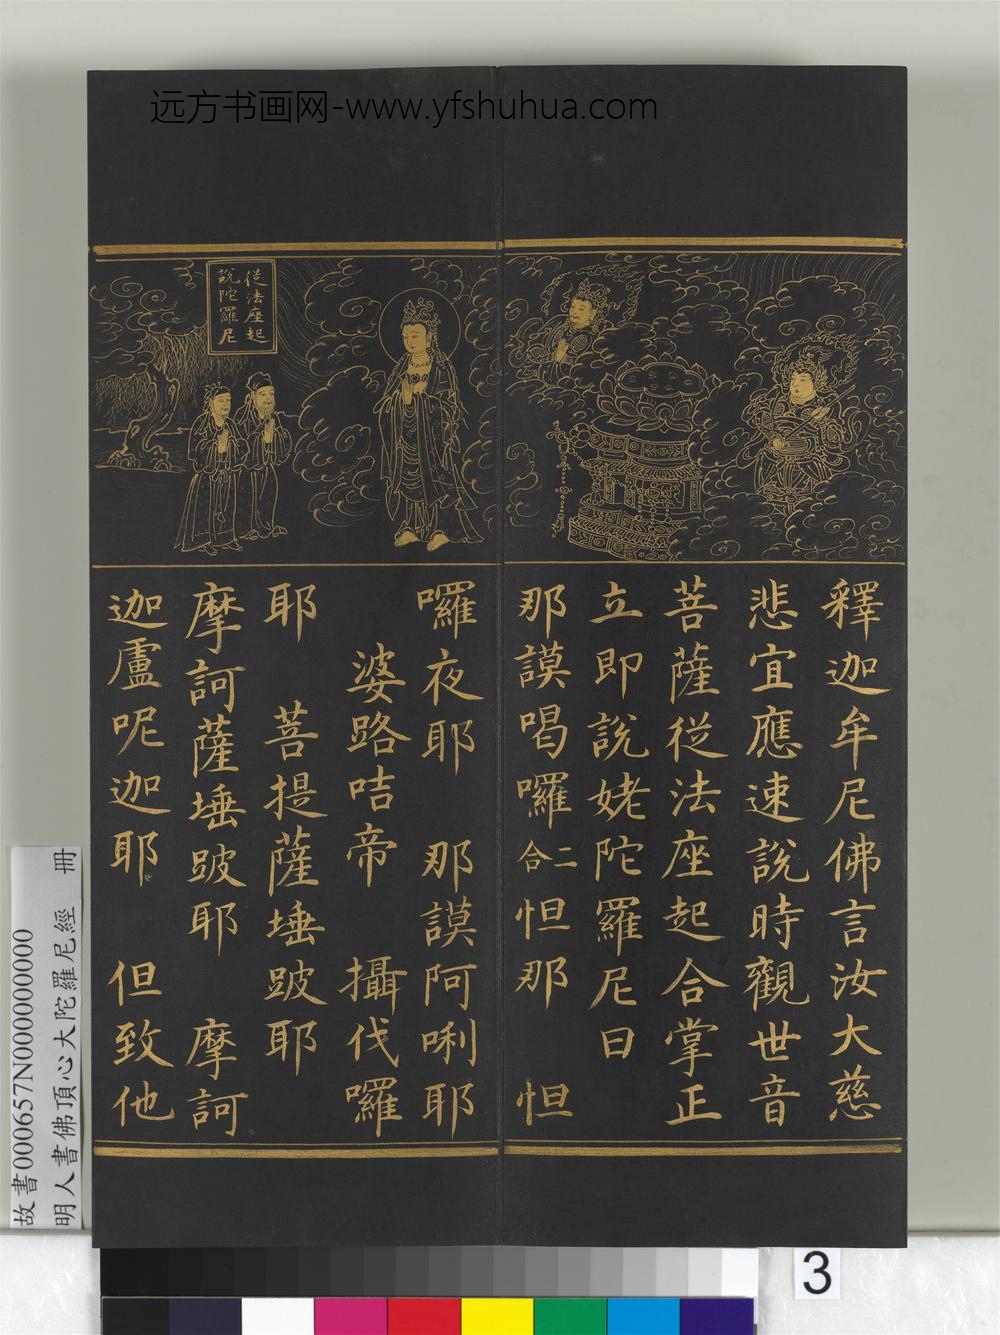 远方书画网-www.yfshuhua.com
從法座起
說陀羅尼
釋迦牟尼佛言汝大慈
悲宜應速說時觀世音
菩薩從法座起合掌正
立即說姥陀羅尼曰
那謨喝囉二合怛那 怛
囉夜耶 那謨阿唎耶
婆路咭帝 攝伐囉
耶 菩提薩埵跛耶
摩訶薩埵跛耶 摩訶
迦盧呢迦耶 但致他
故書000657N000000000
明人書佛頂心大陀羅尼經 冊
3